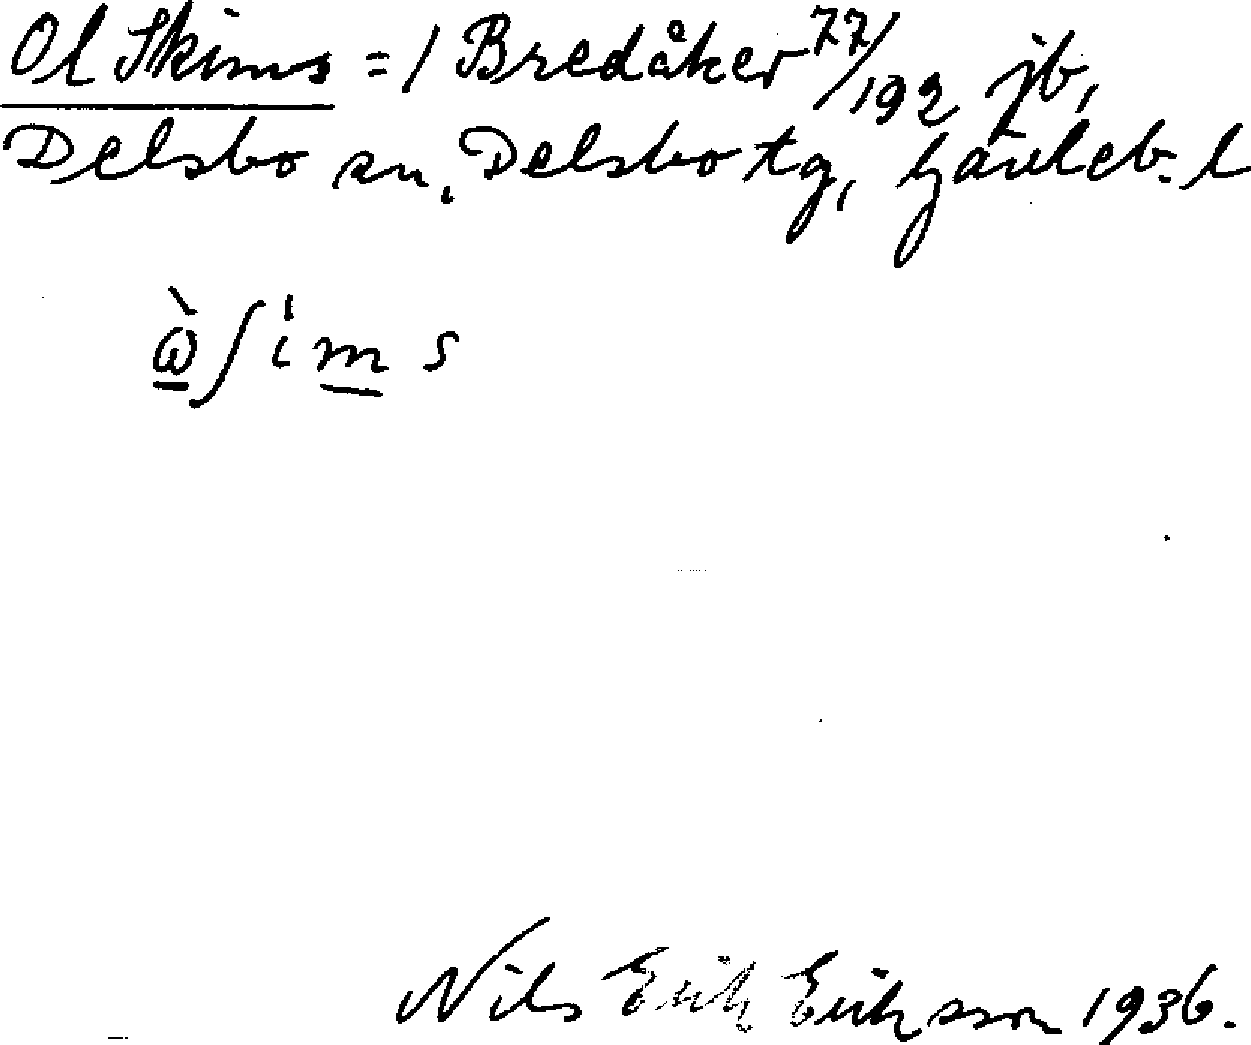 Ol Skims = 1 Bredåker 77/192 jb,
Delsbo sn, Delsbo tg, Gävleb. l
ὼ ʃ i m s
Nils Erik Eriksson 1936.